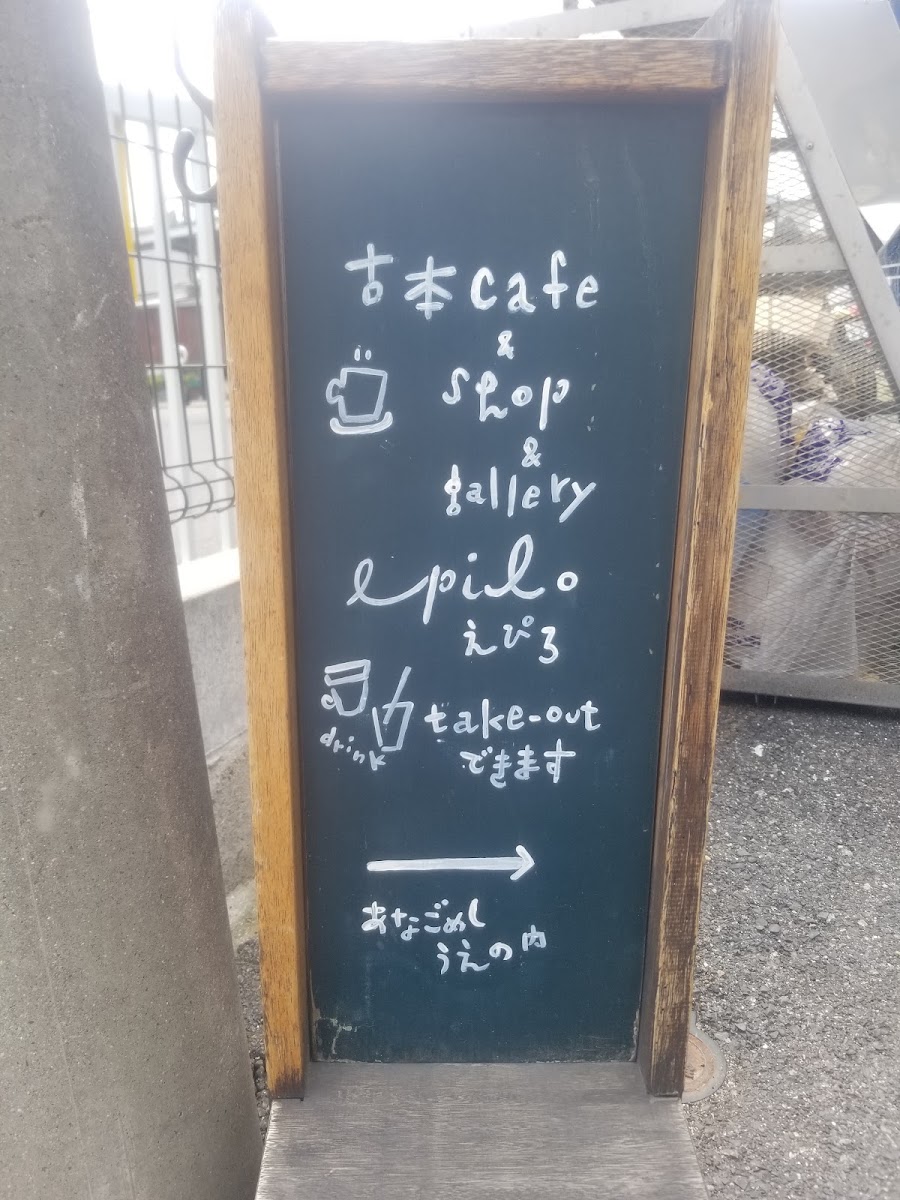 古本cafe
&
shop
&
gallery
epilo
えぴろ
drink
take-out
できます
あなごめし
うえの内